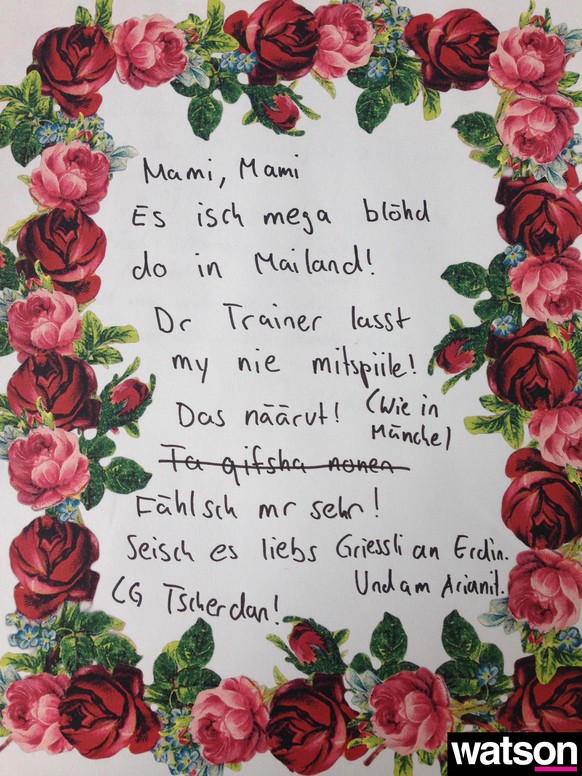 Mami, Mami
Es isch mega blöhd
do in Mailand!
Dr Trainer lasst
my nie mitspiile!
Das näärvt! (Wie in
Münche)
Ta qifsha nonen
Fählsch mr sehr!
Seisch es liebs Griessli an Erdin.
Und am Arianit.
LG Tscherdan!
watson